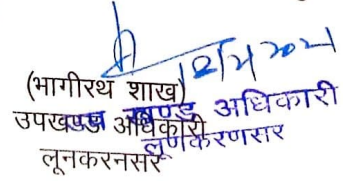 (भागीरथ शाख)
उपखण्ड अधिकारी
लूनकरनसर
उप खण्ड अधिकारी
लूणकरणसर